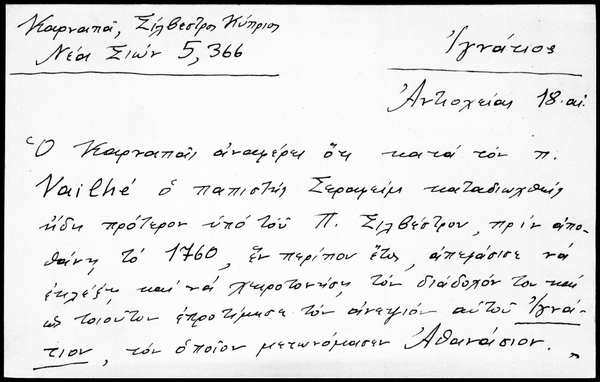 Καρναπᾶ, Σίλβεστρος Κύπριος
Νέα Σιών 5,366
Ἰγνάτιος
Ἀντιοχείας 18. αἰ.
Ὁ Καρναπᾶς ἀναφέρει ὅτι κατά τόν π.
Vailhé ὁ παπιστής Σεραφείμ καταδιωχθείς
ἤδη πρότερον ὑπό τοῦ Π. Σιλβέστρου, πρίν ἀπο-
θάνῃ τό 1760, ἕν περίπου ἔτος, ἀπεφάσισε νά
ἐκλέξῃ καί νά χειροτονήσῃ τόν διάδοχόν του καί
ὡς τοιοῦτον ἐπροτίμησε τόν ἀνεψιόν αὐτοῦ Ἰγνά-
τιον, τόν ὁποῖον μετωνόμασεν Ἀθανάσιον.